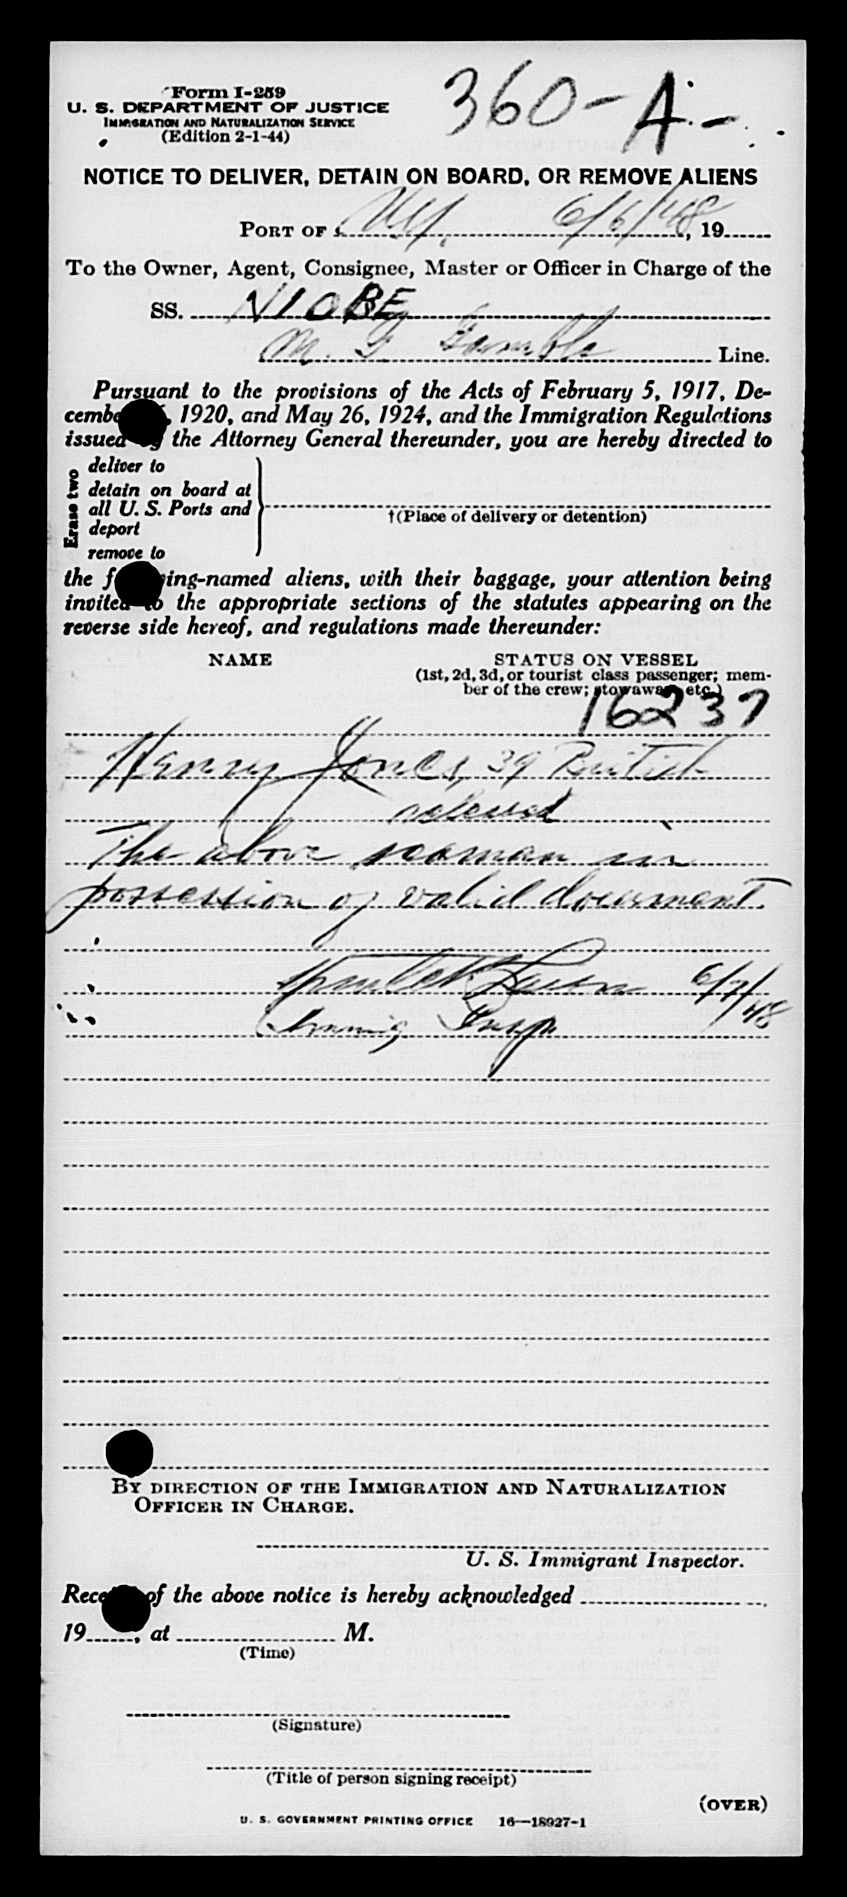 Form I-259
360-A-
U. S. DEPARTMENT OF JUSTICE
IMMIGRATION AND NATURALIZATION SERVICE
(Edition 2-1-44)
NOTICE TO DELIVER, DETAIN ON BOARD, OR REMOVE ALIENS
PORT OF NY. 6/6/48, 19
To the Owner, Agent, Consignee, Master or Officer in Charge of the
SS. NIOBE
M. G Gamble Line.
Pursuant to the provisions of the Acts of February 5, 1917, De-
cembe , 1920, and May 26, 1924, and the Immigration Regulations
issued by the Attorney General thereunder, you are hereby directed to
Erase two
deliver to
detain on board at
all U. S. Ports and
deport
remove to
†(Place of delivery or detention)
the f ing-named aliens, with their baggage, your attention being
invited to the appropriate sections of the statutes appearing on the
reverse side hereof, and regulations made thereunder:
NAME STATUS ON VESSEL
(1st, 2d, 3d, or tourist class passenger; mem-
ber of the crew; stowaway, etc.)
16237
Henry Jones, 39 British
released
The above seaman in
possession of valid document.
6/7/48
Immig Insp.
BY DIRECTION OF THE IMMIGRATION AND NATURALIZATION
OFFICER IN CHARGE.
U. S. Immigrant Inspector.
Rece of the above notice is hereby acknowledged
19 , at M.
(Time)
(Signature)
(Title of person signing receipt)
(OVER)
U. S. GOVERNMENT PRINTING OFFICE 16—18927-1